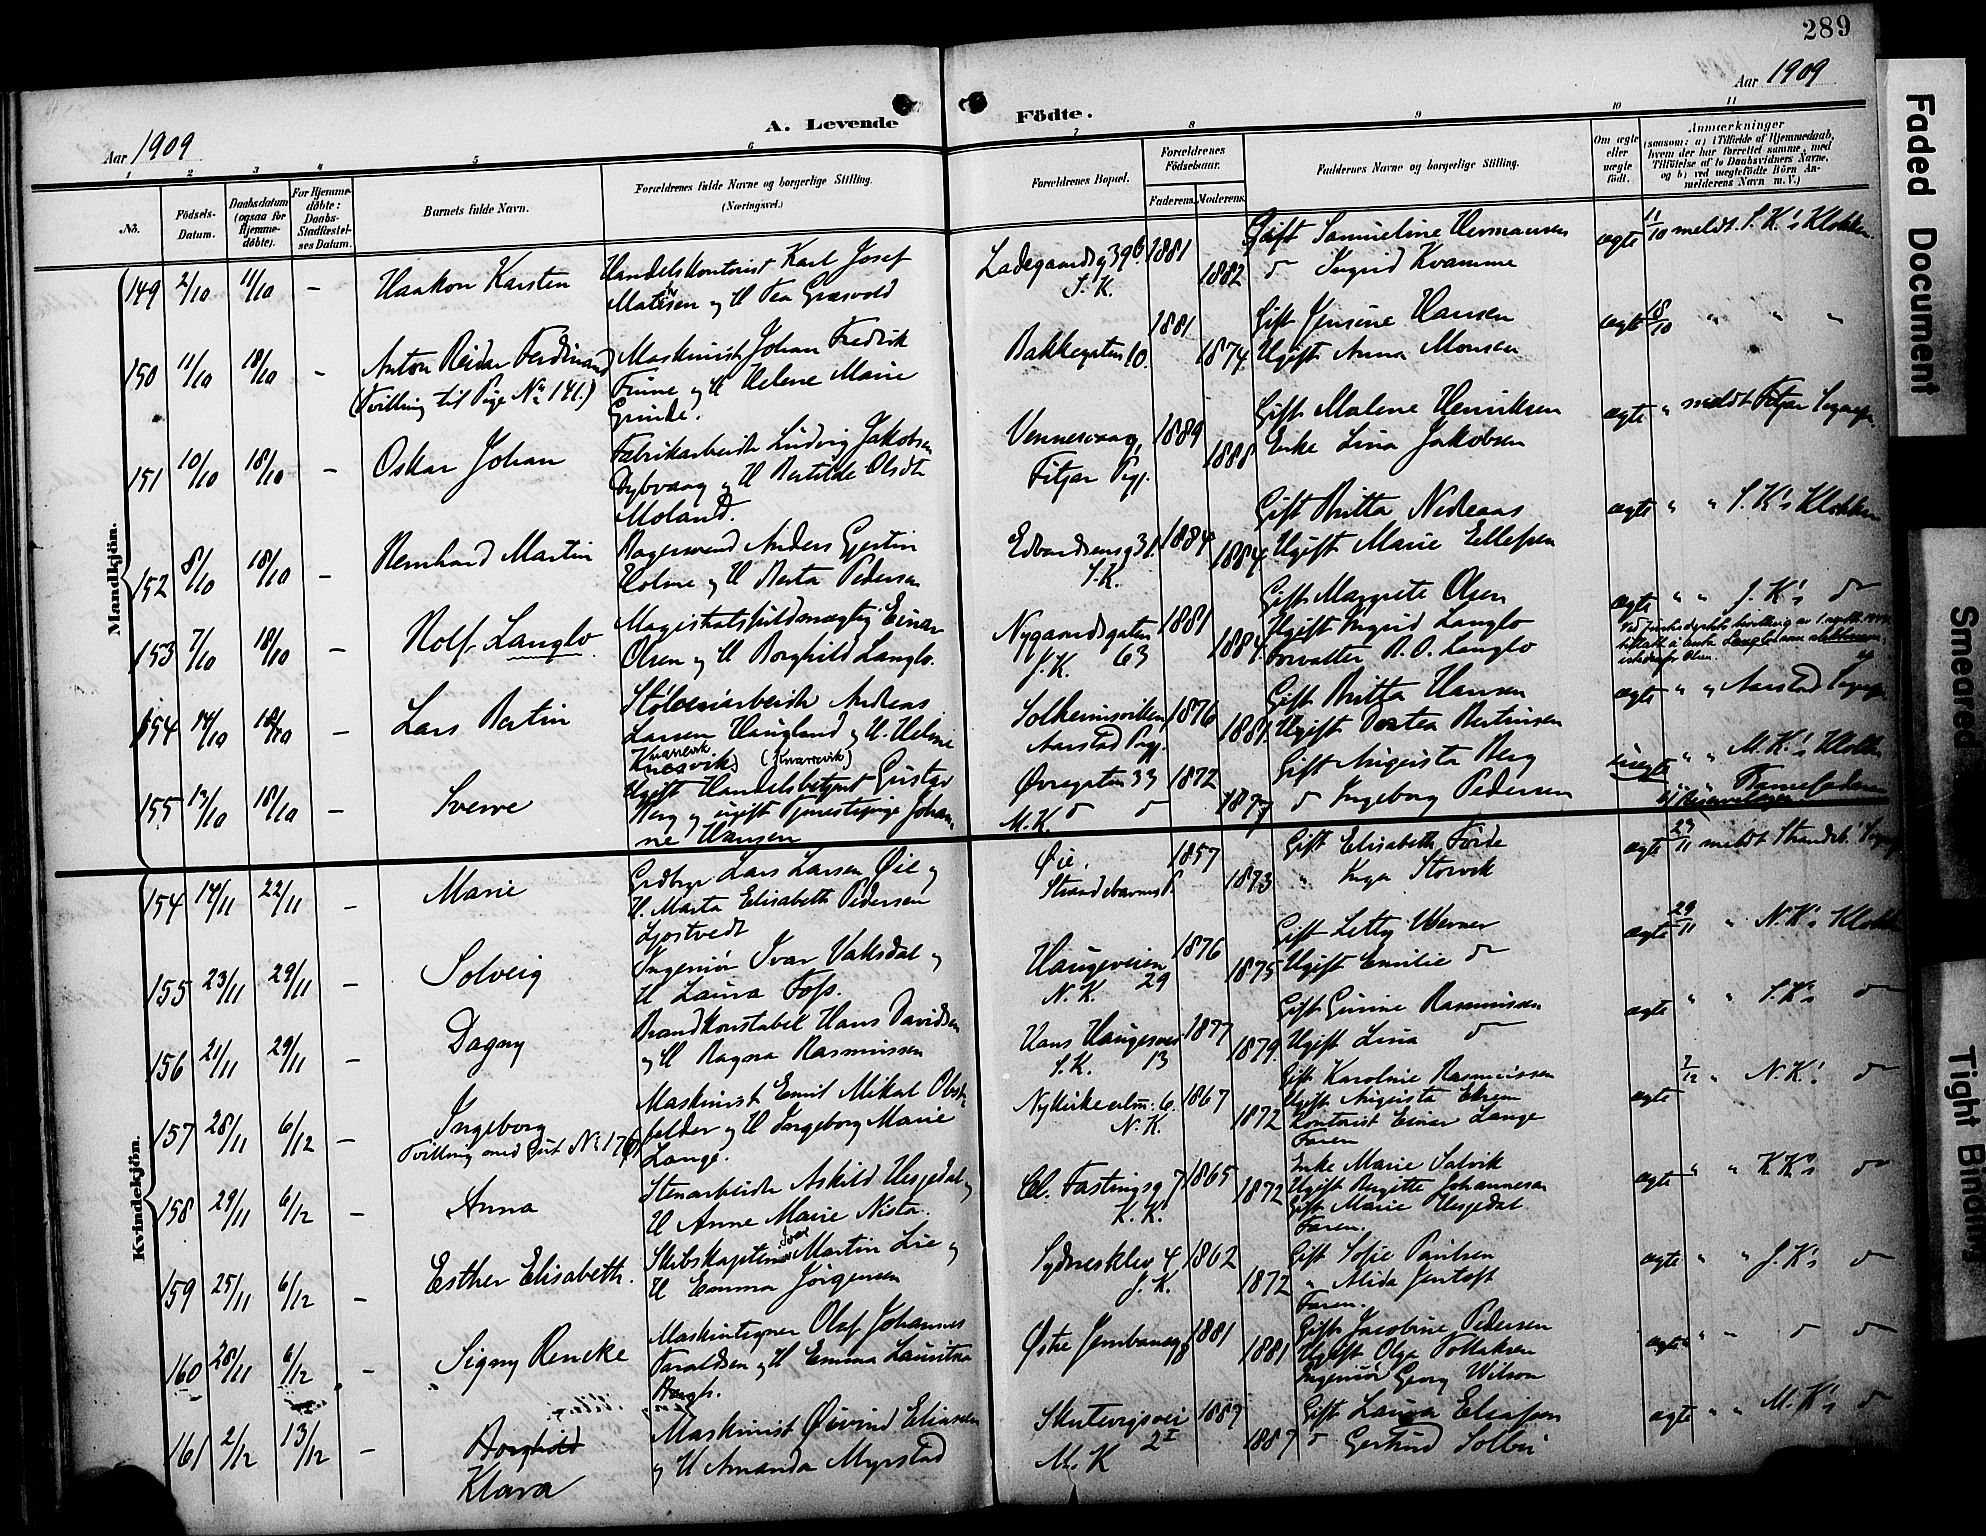 289
Aar 1909
Aar 1909
A. Levende Födte.
1 2 3 4 5 6 7 8 9 10 11
No.
Födsels-Datum.
Daabsdatum (ogsaa for Hjemmedöbte).
For Hjemmedöbte: Daabs-Stadfæstelses Datum.
Barnets fulde Navn.
Forældrenes fulde Navne og borgerlige Stilling.
(Næringsvei.)
Forældrenes Bopæl.
Forældrenes Födselsaar.
Faderens.
Moderens.
Faddernes Navne og borgerlige Stilling.
Om ægte eller uægte födt.
Anmærkninger
(saasom: a) i Tilfælde af Hjemmedaab,
hvem der har forrettet samme, med
Tilföielse af to Daabsvidners Navne,
og b) ved uægtefödte Börn Anmelderens Navn m. V.)
Mandkjön.
149 2/10 11/10 - Haakon Karsten
Handelskontorist Karl Josef
Matisen og H Tea Græsvold
Ladegaardsg 39b
S.K.
1881
1882
Gift Samueline Hermansen
d Ingrid Kvamme
ægte 11/10 meldt S.K.'s Klokker
150 11/10 18/10 - Anton Reidar Ferdinand
(Tvilling til Pige No 141.)
Maskinist Johan Fredrik
Finne og H Helene Marie
Grinde.
Bakkegaten 10.
1881
1874
Gift Jensine Hansen
Ugift Anna Monsen
ægte 18/10 " " "
151 10/10 18/10 - Oskar Johan
Fabrikarbeider Ludvig Jakobsen
Dybvaag og H Bertilde Olsdtr
Moland.
Fitjar Pgj.
1889
1888
Gift Malene Henriksen
Enke Lina Jakobsen
ægte " meldt Fitjar
152 8/10 18/10 - Bernhard Martin
Bagersvend Anders Gjertin
Holme og H Berta Pedersen
Edvardsensg 31.
S.K.
1884
1884
Gift Britta Nedreaas
Ugift Marie Ellefsen
ægte " " S.K's Klokker
153 7/10 18/10 - Rolf Langlo.
Magistratsfuldmægtig Einar
Olsen og H Borghild Langlo.
Nygaardsgaten
S.K. 63
1881
1884
Gift Margrete Olsen
Ugift Ingrid Langlo
Forvalter B. O. Langlo
ægte " " S.K's d
154 14/10 18/10 - Lars Bertin
Larsen Haugland og H. Helene
Knarrevik
(Knarrevik)
Solheimsviken
Aarstad Pgj.
1876
1881.
Gift Britta Hansen
Ugift Dortea Bertinsen
ægte " " Aarstad
155 13/10 18/10 - Sverre
Ugift Handelsbetjent Gustav
Berg og ugift Tjenestepige Johanne Hansen
Øvregaten 33
M.K. d d
1872
1877
Gift Augusta Berg
d Ingeborg Pedersen
uægte " " M.K.'s Klokker
Barnefaderen
Kvindekjön.
154 14/11 22/11 - Marie
Grdbrgr Lars Larsen Øie og
H. Marta Elisabeth Pedersen
Øie.
Strandebarms P.
1857
1873
Gift Elisabeth Förde
" Inga Storvik
ægte 23/11 meldt Strandeb.
155 23/11 29/11 - Solveig
Ingeniör Ivar Vaksdal og
H Laura Foss.
Haugeveien
N.K. 29
1876
1875
Gift Letty Werner
Ugift Emilie d
ægte 29/11 " N.K's Klokker
156 21/11 29/11 - Dagny
Brandkonstabel Hans Davidsen
og H Ragna Rasmussen
Hans Haugesvei
S.K. 13
1877
1879.
Gift Gurine Rasmussen
Ugift Lina d
ægte " " S.K's d
157 28/11 6/12 - Ingeborg
Tvilling med Gut No 176
Maskinist Emil Mikal Obstfelder og H Ingeborg Marie
Lange.
Nykirkealm. 6.
N.K.
1867
1872
Gift Karoline Rasmussen
Ugift Augusta Ekren
Kontorist Einar Lange
Faren
ægte 7/12 " N.K's d
158 29/11 6/12 - Anna
Stenarbeider Askild Hesjedal og
H Anne Marie Nistø.
Cl. Fastingsg 7
K.K.
1865
1872
Enke Marie Salvik
Ugift Birgitte Johannesen
Gift Marie Hesjedal
Faren.
ægte " " K.K's d
159 25/11 6/12 - Esther Elisabeth.
Skibskaptein Martin Lie og
H Emma Jörgensen
Sydnesklev 4
S.K.
1862
1872
Gift Sofie Paulsen
" Alida Jentoft
Faren.
ægte " " S.K's d
160 28/11 6/12 - Signy Rencke
Maskintegner Olaf Johannes
Taraldsen og H Emma Lauritza
Østre Jernbaneg 8
1881
1881
Gift Jacobine Pedersen
Ugift Olga Tollaksen
Ingeniör Georg Wilson
ægte " " d d
161 2/12 13/12 - Borghild
Klara
Maskinist Øivind Eliassen
og H Amanda Myrstad
Skuteviksvei
M.K 2I
1887
1887
Gift Laura Eliassen
d Gertrud Solbu
ægte " " M.K's d
Faded Document
Smeared
Tight Binding